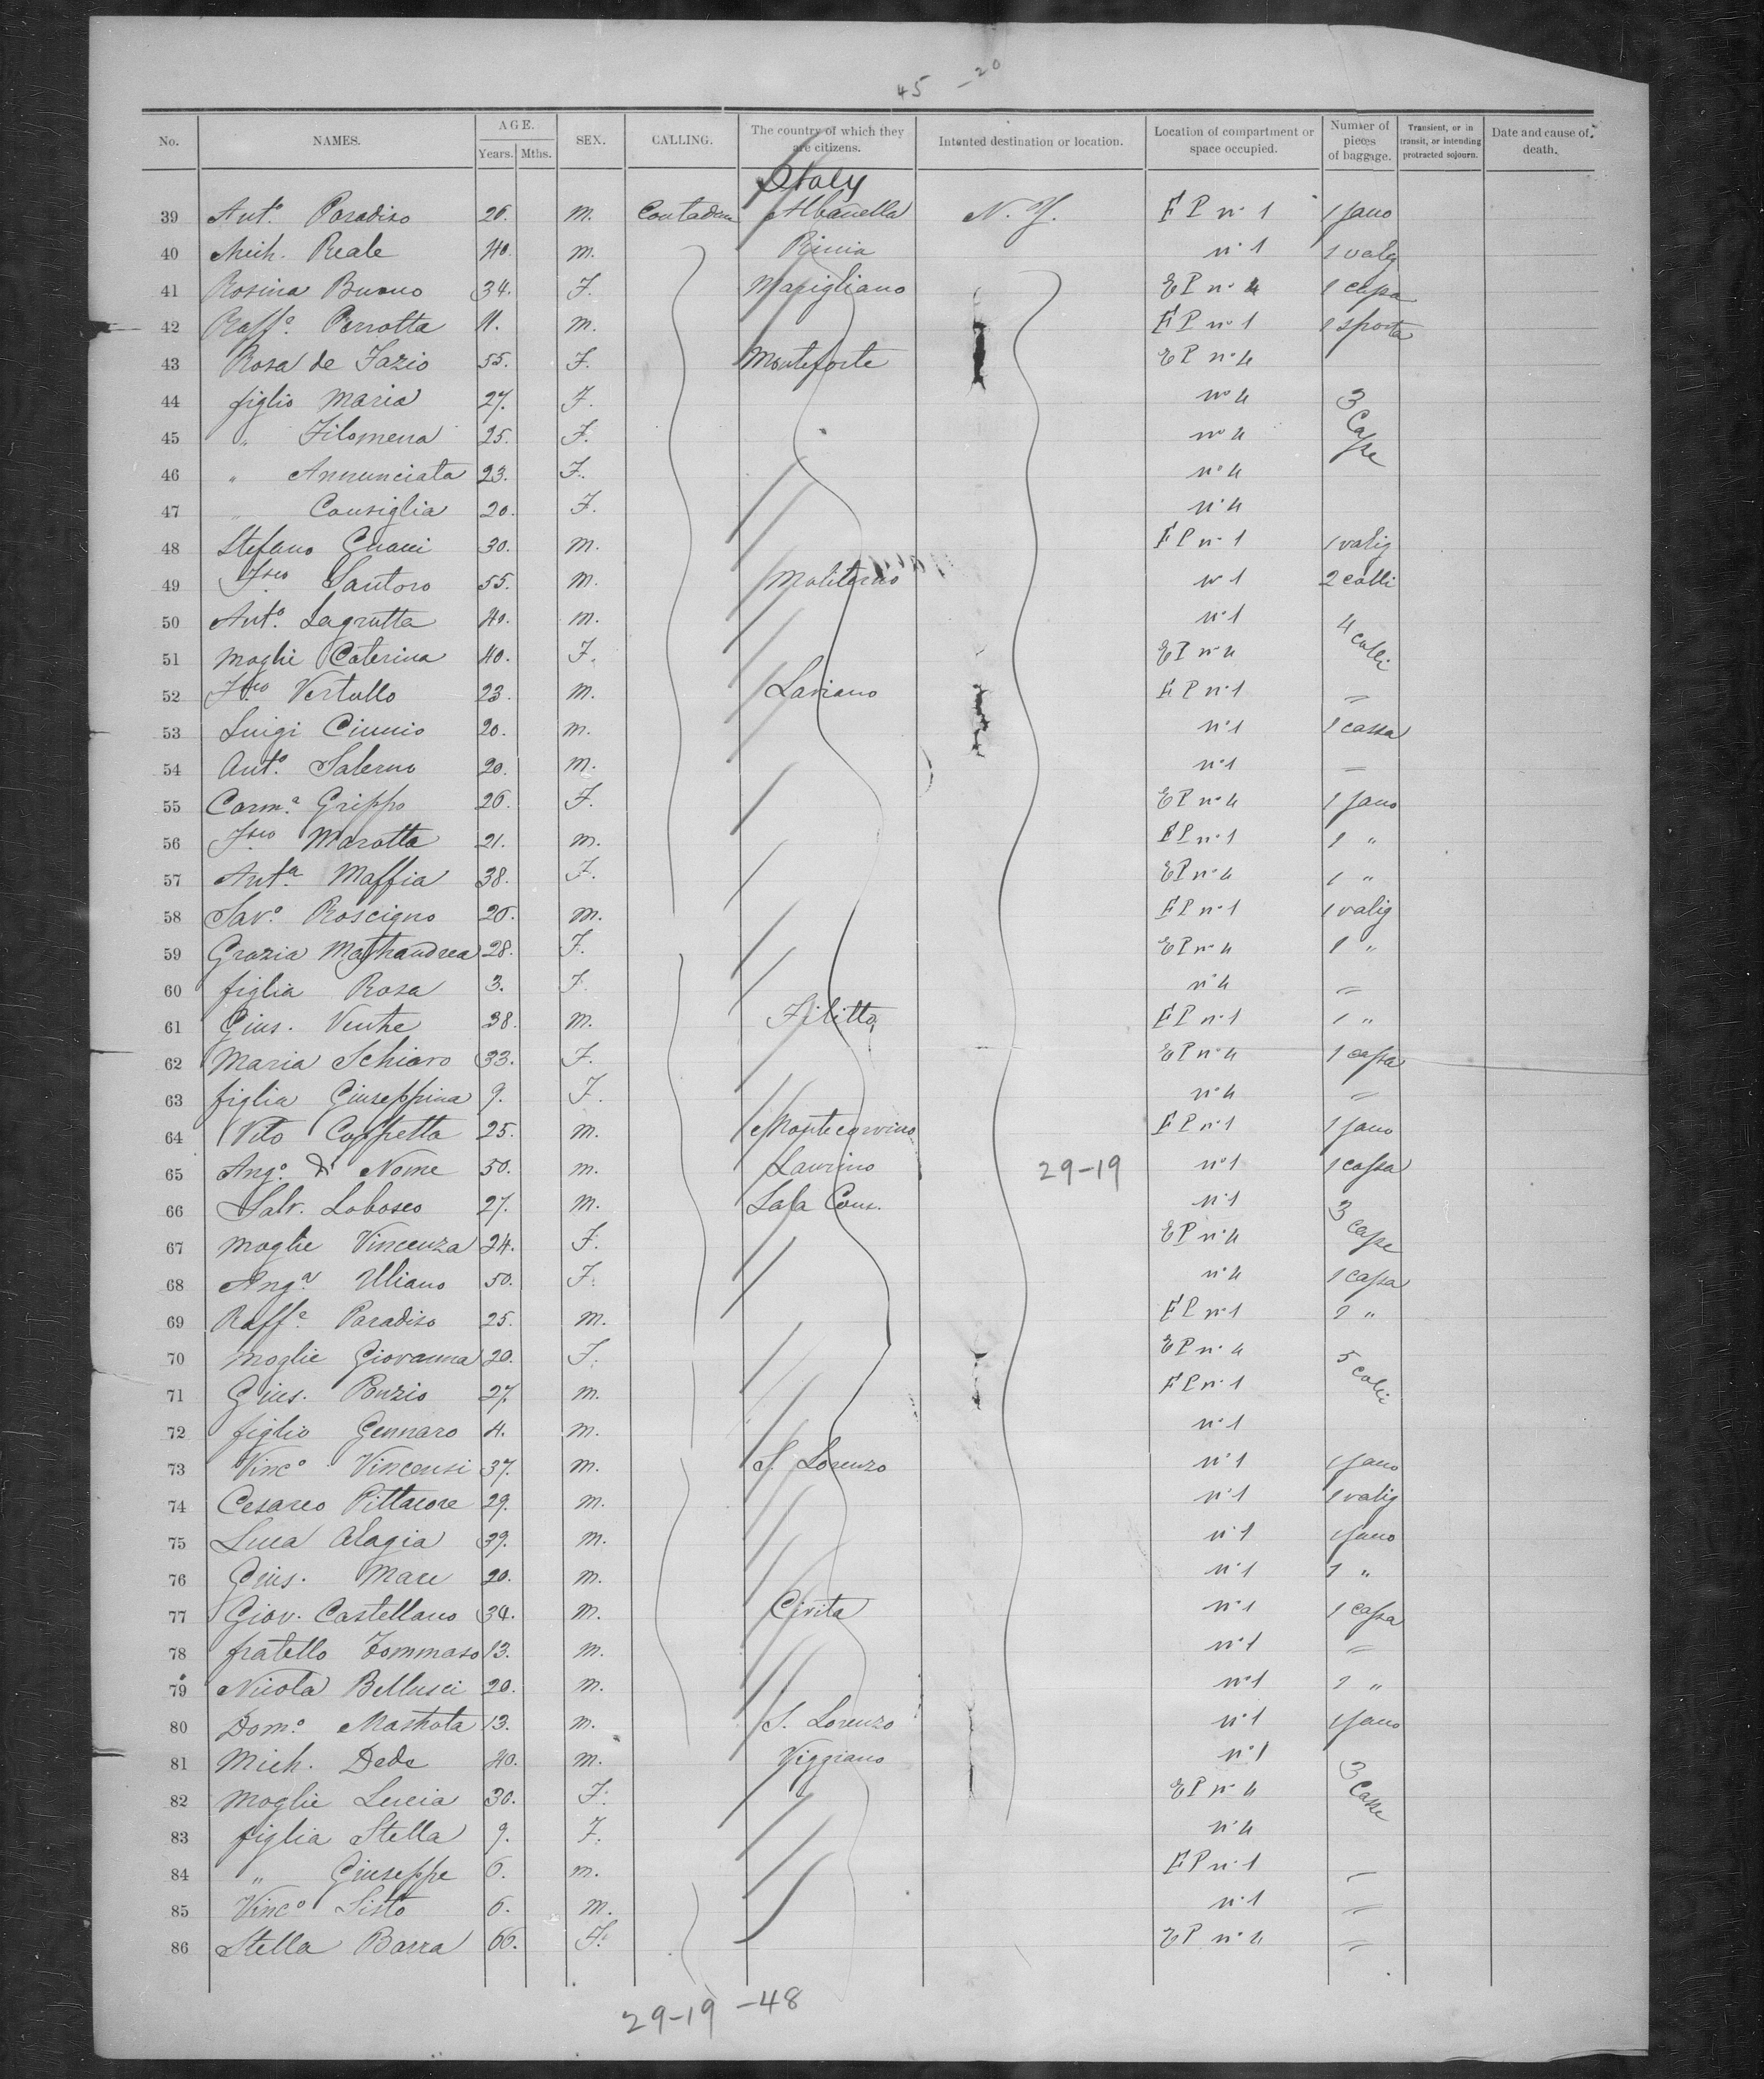 45 -20
No. NAMES. AGE. Years. Mths. SEX. CALLING. The country of which they are citizens. Intented destination or location. Location of compartment or space occupied. Number of pieces of baggage. Transient, or in transit, or intending protracted sojourn. Date and cause of death.
Italy
39 Ant.o Paradiso 26. m. Albanella N. Y. E P n° 1 1 sano
40 Mich. Reale 40. m. n° 1 1 valig
41 Rosina Buono 34. F. Marigliano E P n° 4 1 cassa
42 Raff.e Perrotta 11. m. E P n° 1 1 sporta
43 Rosa de Fazio 55. F. Monteforte E P n° 4
44 figlio Maria 27. F. n° 4 3 Casse
45 " Filomena 25. F. n° 4
46 " Annunciata 23. F. n° 4
47 " Consiglia 20. F. n° 4
48 Stefano 30. m. E P n° 1 1 valig
49 F.sco Santoro 55. m. Moliterno n° 1 2 colli
50 Ant.o Lagrutta 40. m. n° 1 4 colli
51 moglie Caterina 40. F. E P n° 4
52 F.sco Vertullo 23. m. Laviano E P n° 1 "
53 Luigi Ciunio 20. m. n° 1 1 cassa
54 Ant.o Salerno 20. m. n° 1 "
55 Carm.a Grippo 26. F. E P n° 4 1 sano
56 F.sco Marotta 21. m. E P n° 1 1 "
57 Ant.a Maffia 38. F. E P n° 4 1 "
58 Sav.o Roscigno 26. m. E P n° 1 1 valig
59 Grazia Mastrandrea 28. F. E P n° 4 1 "
60 figlia Rosa 3. F. n° 4 "
61 Gius. Ventre 38. m. Filitto E P n° 1 1 "
62 Maria Schiavo 33. F. E P n° 4 1 cassa
63 figlia Giuseppina 9. F. n° 4 "
64 Vito Coppetta 25. m. Montecorvino E P n° 1 1 sano
65 Ang.o di Nome 50. m. Laurino 29-19 n° 1 1 cassa
66 Salv. Lobosco 27. m. Sala Cons. n° 1 3 casse
67 moglie Vincenza 24. F. E P n° 4
68 Ang.a Uliano 50. F. n° 4 1 cassa
69 Raff.e Paradiso 25. m. E P n° 1 2 "
70 moglie Giovanna 20. F. E P n° 4 5 colli
71 Gius. Ponzio 27. m. E P n° 1
72 figlio Gennaro 4. m. n° 1
73 Vinc.o Vincensi 37. m. S. Lorenzo n° 1 1 sano
74 Cesareo Pittacore 29. m. n° 1 1 valig
75 Luca Alagia 39. m. n° 1 1 sano
76 Gius. Mace 20. m. n° 1 1 "
77 Giov. Castellano 34. m. Civita n° 1 1 cassa
78 fratello Tommaso 13. m. n° 1 "
79 Nicola Bellusci 20. m. n° 1 2 "
80 Dom.o Mastrota 13. m. S. Lorenzo n° 1 1 sano
81 Mich. Dede 40. m. Viggiano n° 1 3 Casse
82 moglie Lucia 30. F. E P n° 4
83 figlia Stella 9. F. n° 4
84 " Giuseppe 6. m. E P n° 1 "
85 Vinc.o Sisto 6. m. n° 1 "
86 Stella Barra 66. F. E P n° 4 "
29-19 -48